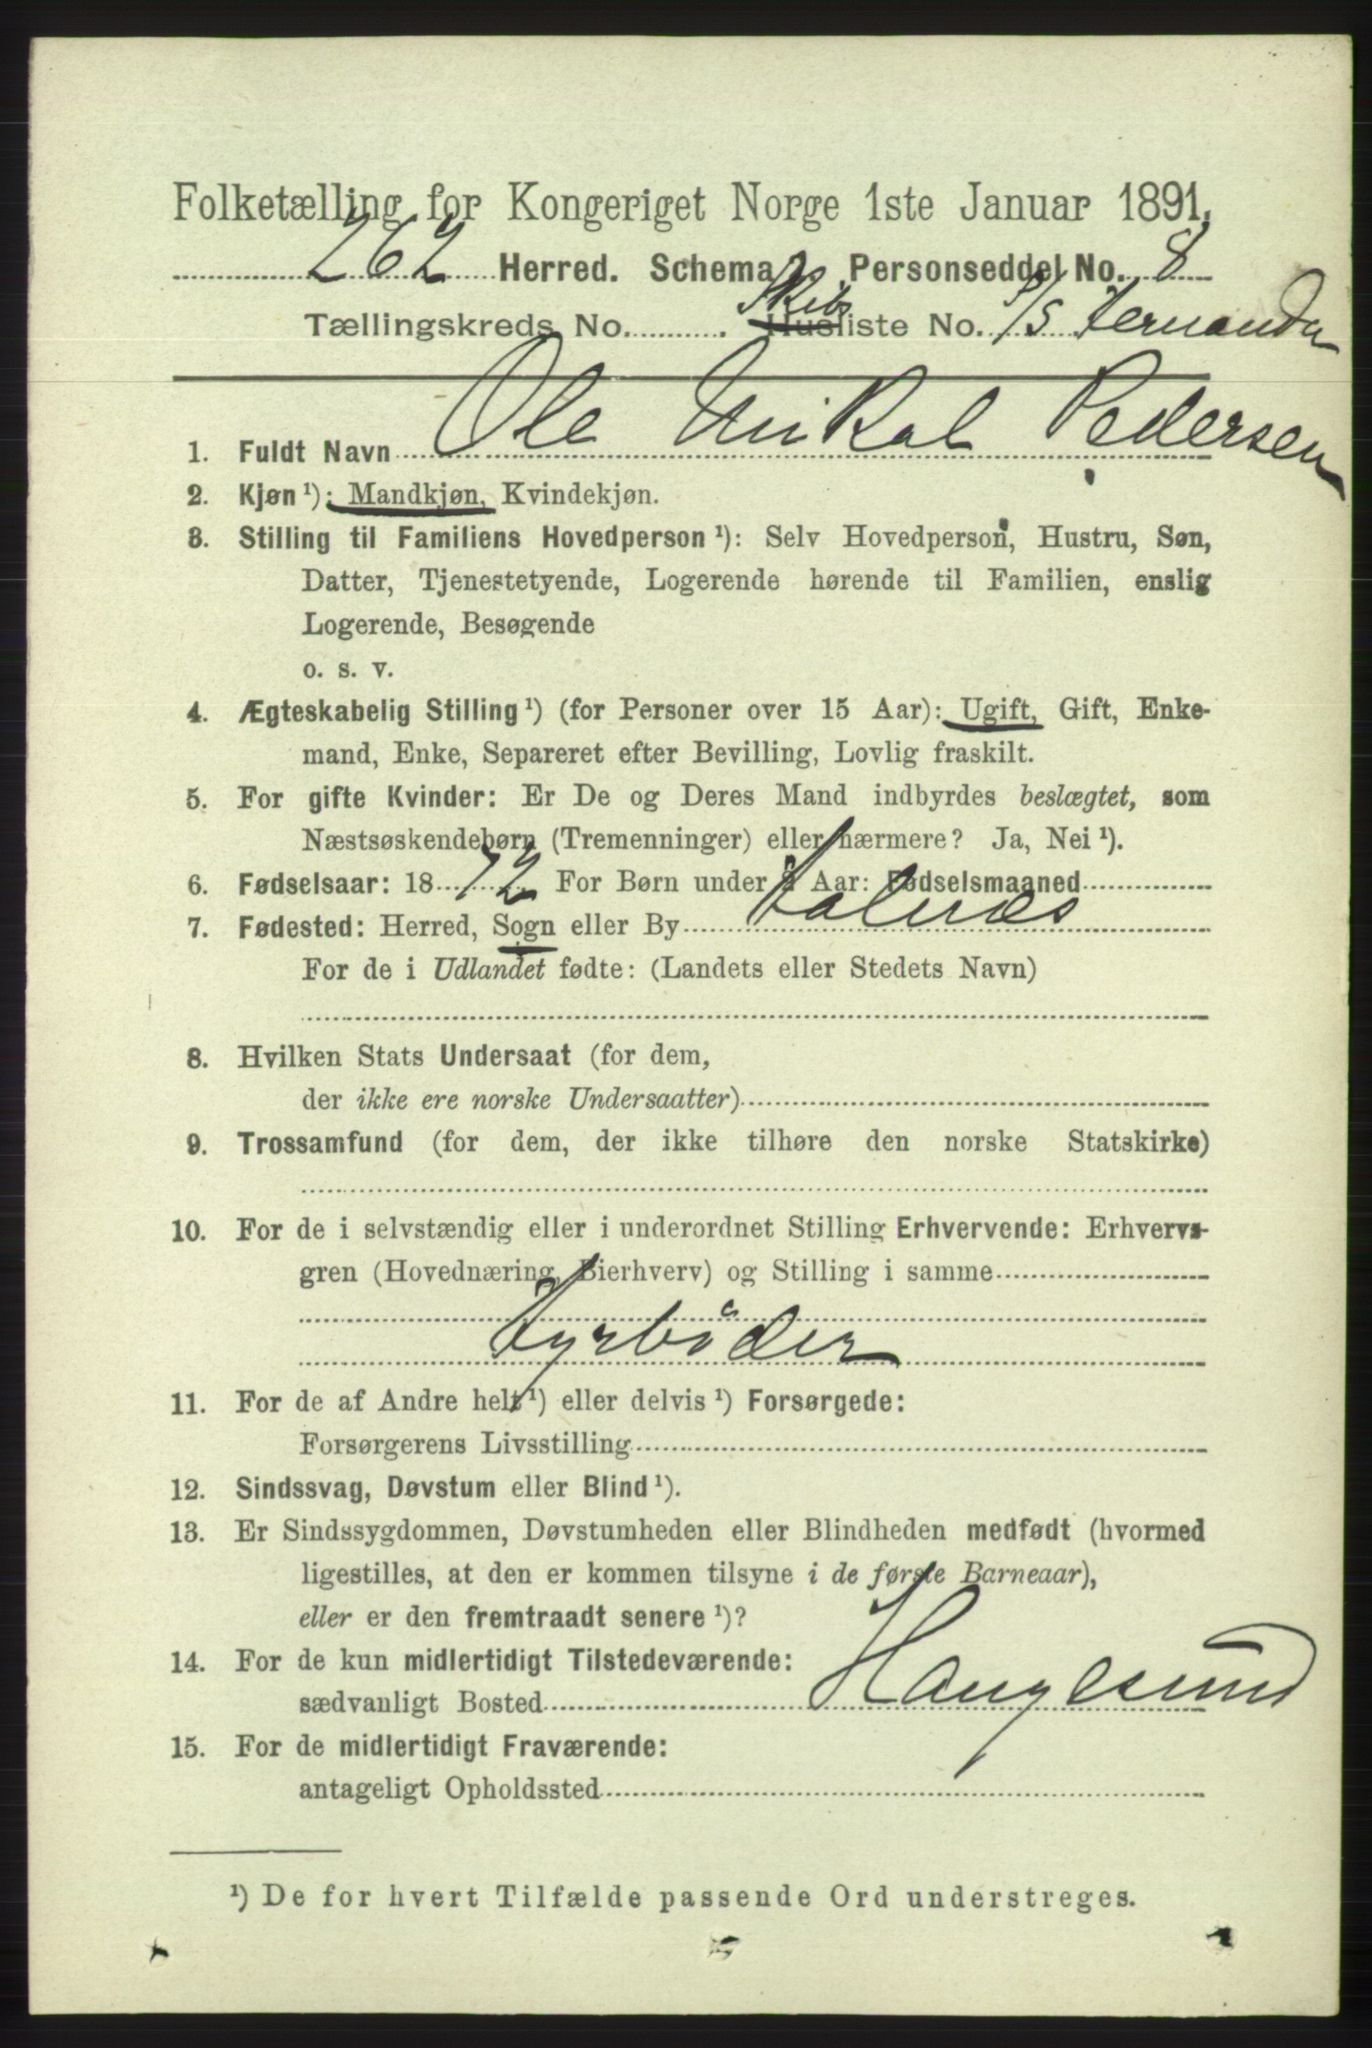 Folketælling for Kongeriget Norge 1ste Januar 1891.
262 Herred. Schema 2 Personseddel No. 8
Tællingskreds No. . Skibs Husliste No. S/S
1. Fuldt Navn Ole Mikal Pedersen
2. Kjøn ¹): Mandkjøn, Kvindekjøn.
3. Stilling til Familiens Hovedperson ¹): Selv Hovedperson, Hustru, Søn,
Datter, Tjenestetyende, Logerende hørende til Familien, enslig
Logerende, Besøgende
o. s. v.
4. Ægteskabelig Stilling ¹) (for Personer over 15 Aar): Ugift, Gift, Enke-
mand, Enke, Separeret efter Bevilling, Lovlig fraskilt.
5. For gifte Kvinder: Er De og Deres Mand indbyrdes beslægtet, som
Næstsøskendebørn (Tremenninger) eller nærmere? Ja, Nei ¹).
6. Fødselsaar: 18 72 For Børn under 2 Aar: Fødselsmaaned
7. Fødested: Herred, Sogn eller By Falnæs
For de i Udlandet fødte: (Landets eller Stedets Navn)
8. Hvilken Stats Undersaat (for dem,
der ikke ere norske Undersaatter)
9. Trossamfund (for dem, der ikke tilhøre den norske Statskirke)
10. For de i selvstændig eller i underordnet Stilling Erhvervende: Erhvervs-
gren (Hovednæring, Bierhverv) og Stilling i samme
Fyrböder
11. For de af Andre helt ¹) eller delvis ¹) Forsørgede:
Forsørgerens Livsstilling
12. Sindssvag, Døvstum eller Blind ¹).
13. Er Sindssygdommen, Døvstumheden eller Blindheden medfødt (hvormed
ligestilles, at den er kommen tilsyne i de første Barneaar),
eller er den fremtraadt senere ¹)?
14. For de kun midlertidigt Tilstedeværende:
sædvanligt Bosted Haugesund
15. For de midlertidigt Fraværende:
antageligt Opholdssted
¹) De for hvert Tilfælde passende Ord understreges.